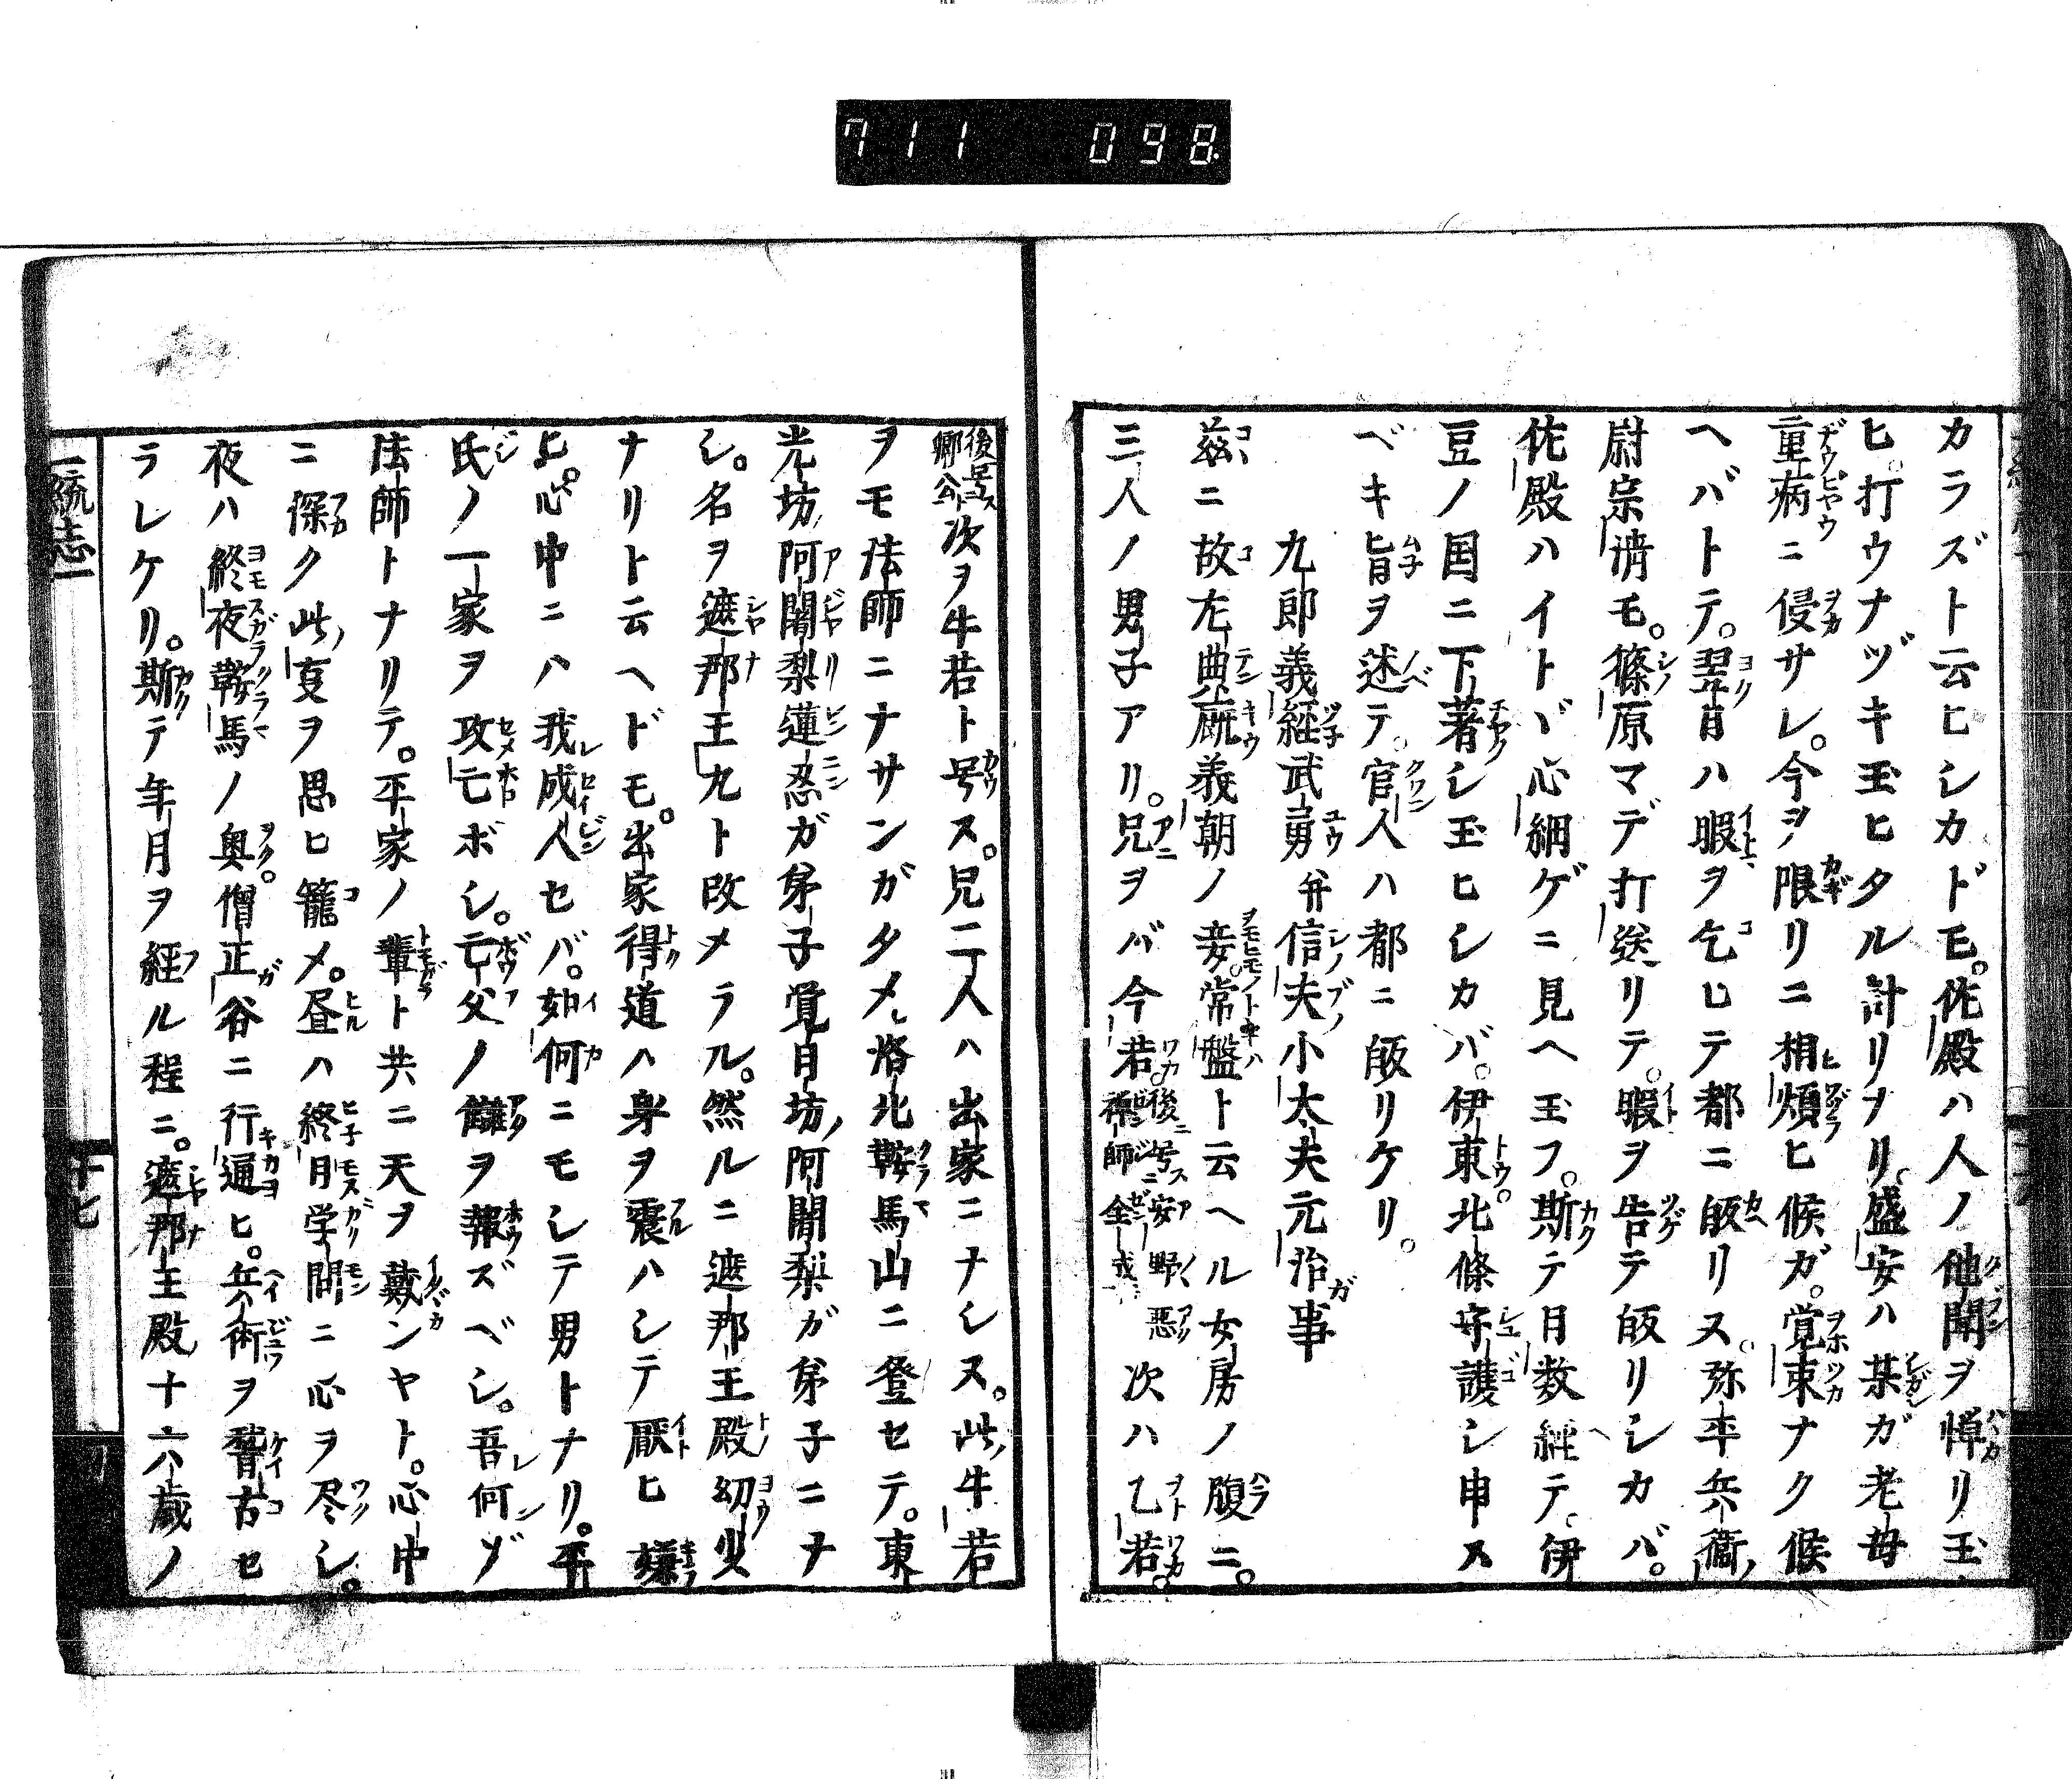 711 098
カラズト云ヒシカドモ。佐殿ハ人ノ他聞ヲ憚リ玉
ヒ。打ウナヅキ玉ヒタル計リナリ。盛安ハ某ガ老母
重病ニ侵サレ。今ヲ限リニ相煩ヒ候ガ。覚束ナク候
ヘバトテ。翌日ハ暇ヲ乞ヒテ都ニ皈リヌ。弥平兵衞
尉宗清モ。篠原マデ打送リテ。暇ヲ告テ皈リシカバ。
佐殿ハイトヾ心細ゲニ見ヘ玉フ。斯テ日数経テ。伊
豆ノ国ニ下著シ玉ヒシカバ。伊東。北條守護シ申ス
ベキ旨ヲ述テ。官人ハ都ニ皈リケリ。
九郎義経武勇并信夫小太夫元治事
茲ニ故左典厩義朝ノ妾。常盤ト云ヘル女房ノ腹ニ。
三人ノ男子アリ。兄ヲバ今若。後ニ号ス安野悪禅師全成次ハ乙若。
後号ス卿公次ヲ牛若ト号ス。兄二人ハ出家ニナシヌ。此牛若
ヲモ法師ニナサンガタメ。洛北鞍馬山ニ登セテ。東
光坊阿闍梨蓮忍ガ弟子覚日坊阿闍梨ガ弟子ニナ
シ。名ヲ遮那王丸ト改メラル。然ルニ遮那王殿幼少
ナリト云ヘドモ。出家得道ハ身ヲ震ハシテ厭ヒ嫌
ヒ。心中ニハ我成人セバ。如何ニモシテ男トナリ。平
氏ノ一家ヲ攻亡ボシ。亡父ノ讎ヲ報ズベシ。吾何ゾ
法師トナリテ。平家ノ輩ト共ニ天ヲ戴ンヤト。心中
ニ深ク此事ヲ思ヒ籠メ。昼ハ終日学問ニ心ヲ尽シ。
夜ハ終夜鞍馬ノ奥。僧正谷ニ行通ヒ。兵術ヲ稽古セ
ラレケリ。斯テ年月ヲ経ル程ニ。遮那王殿十六歳ノ
一統志一
十七